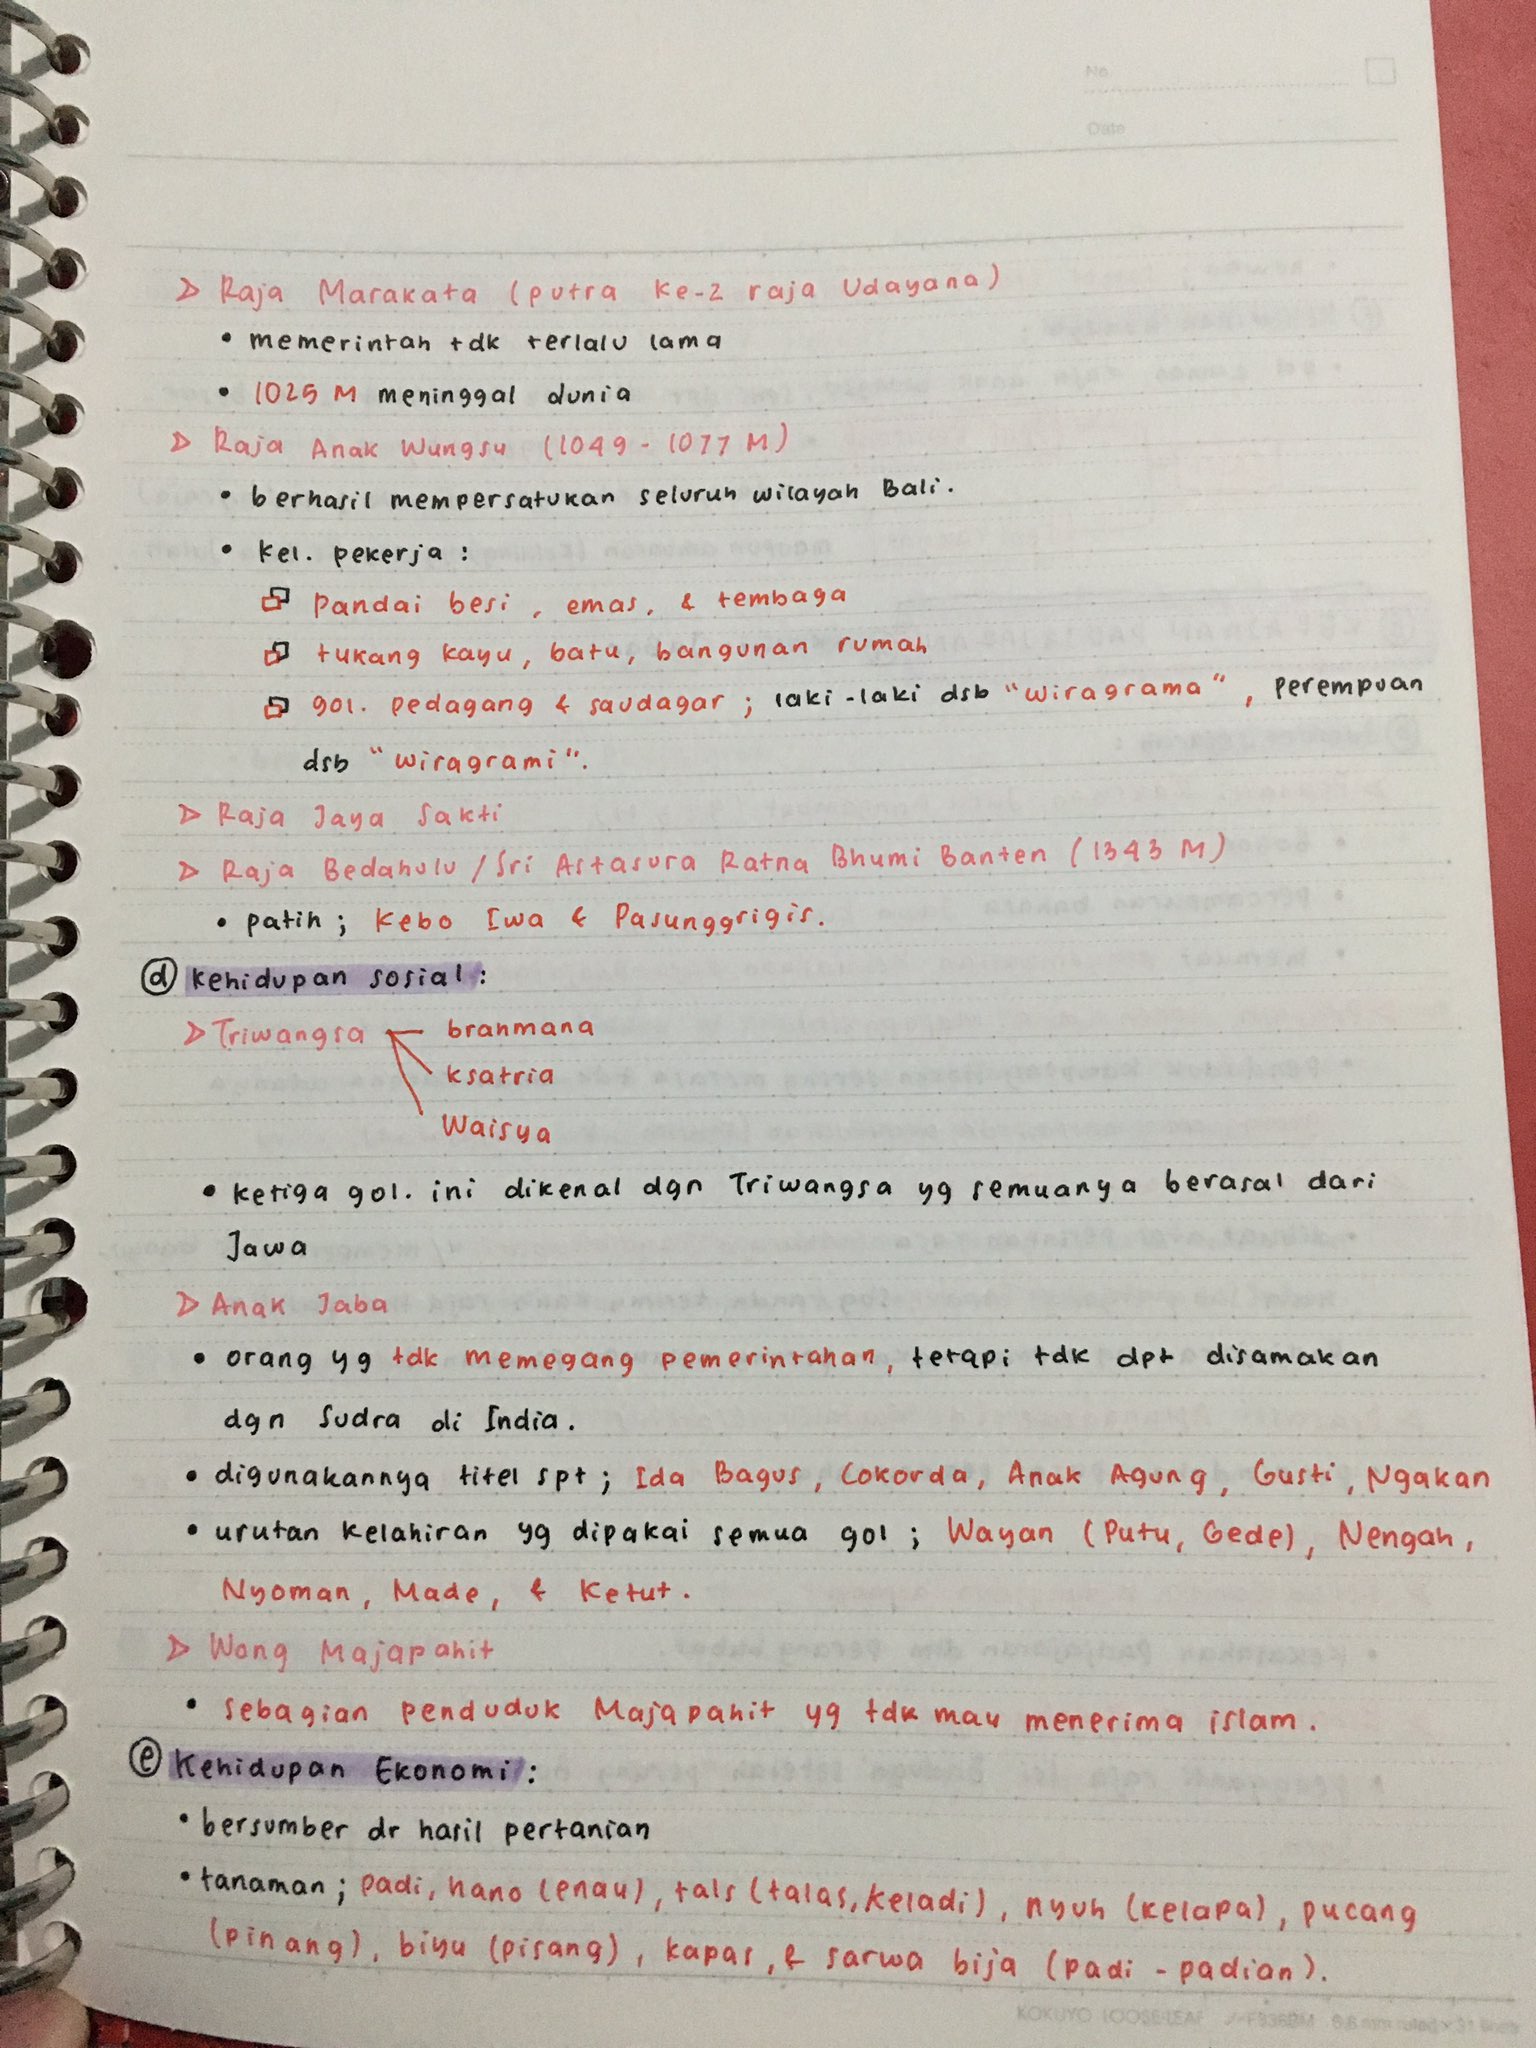 No
Date
Raja Marakata (putra ke-2 raja Udayana)
• memerintah tdk terlalu lama
• 1025 M meninggal dunia
Raja Anak Wungsu (1049 - 1077 M)
• berhasil mempersatukan seluruh wilayah Bali.
• kel. pekerja :
pandai besi, emas, & tembaga
tukang kayu, batu, bangunan rumah
gol. pedagang & saudagar ; laki-laki dsb "wiragrama", perempuan
dsb "wiragrami".
Raja Jaya Sakti
Raja Bedahulu / Sri Astasura Ratna Bhumi Banten (1343 M)
• patih ; Kebo Iwa & Pasunggrigis.
d kehidupan sosial :
Triwangsa brahmana
ksatria
Waisya
• ketiga gol. ini dikenal dgn Triwangsa yg semuanya berasal dari
Jawa
Anak Jaba
• orang yg tdk memegang pemerintahan, tetapi tdk dpt disamakan
dgn Sudra di India.
• digunakannya titel spt ; Ida Bagus, Cokorda, Anak Agung, Gusti, Ngakan
• urutan kelahiran yg dipakai semua gol ; Wayan (Putu, Gede), Nengah,
Nyoman, Made, & Ketut.
Wong Majapahit
• sebagian penduduk Majapahit yg tdk mau menerima islam.
e Kehidupan Ekonomi :
• bersumber dr hasil pertanian
• tanaman ; padi, hano (enau), tals (talas, keladi), nyuh (kelapa), pucang
(pinang), biyu (pisang), kapas, & sarwa bija (padi - padian).
KOKUYO LOOSE-LEAF